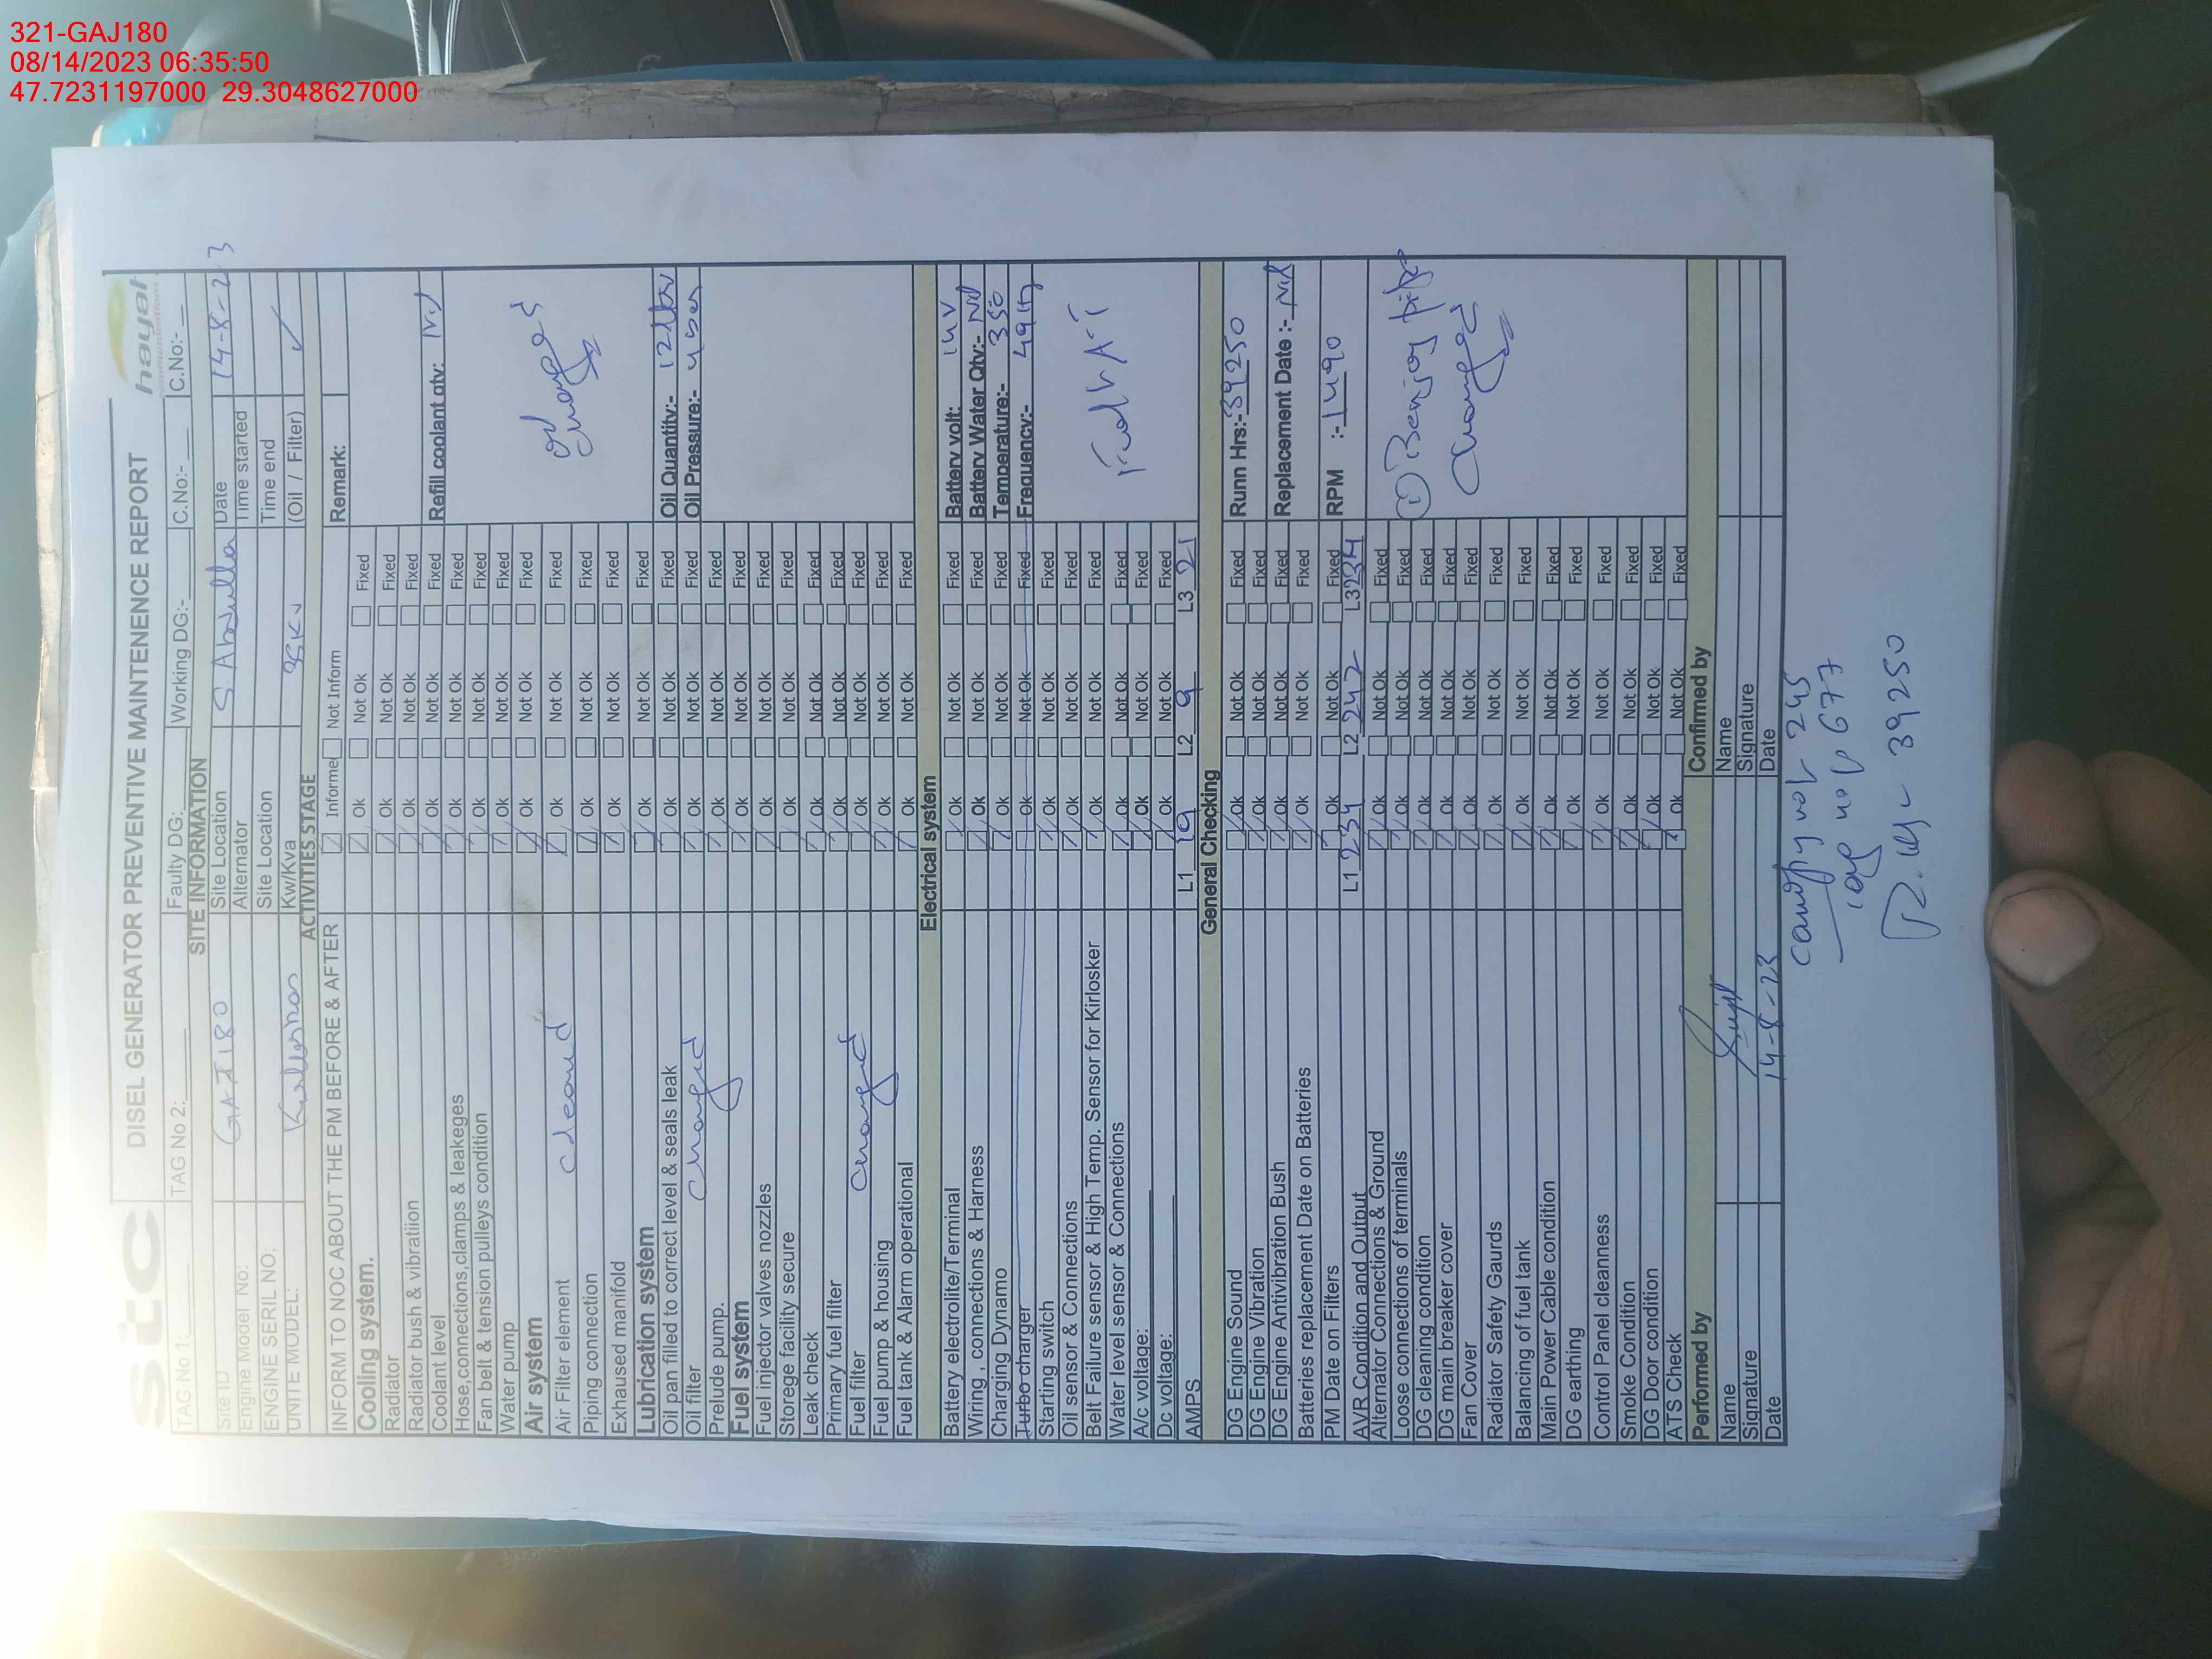 321-GAJ180
08/14/2023 06:35:50
47.7231197000 29.3048627000
stc
DISEL GENERATOR PREVENTIVE MAINTENENCE REPORT
hayat
communications
TAG No 1:
TAG No 2:
Faulty DG:
Working DG:-
C.No:-
C.No:-
SITE INFORMATION
Site ID GAJ180 Site Location S. Abdulla Date 14-8-23
Engine Model No: Alternator Time started
ENGINE SERIL NO: Site Location Time end
UNITE MODEL: Kirloskar Kw/Kva 35KV (Oil / Filter) ✓
ACTIVITIES STAGE
INFORM TO NOC ABOUT THE PM BEFORE & AFTER Informe Not Inform
Remark:
Cooling system. Ok Not Ok Fixed
Radiator Ok Not Ok Fixed
Radiator bush & vibratiion Ok Not Ok Fixed
Coolant level Ok Not Ok Fixed Refill coolant qty: Nil
Hose,connections,clamps & leakeges Ok Not Ok Fixed
Fan belt & tension pulleys condition Ok Not Ok Fixed
Water pump Ok Not Ok Fixed
Air system Ok Not Ok Fixed
Air Filter element cleaned Ok Not Ok Fixed
Oil changed
Piping connection Ok Not Ok Fixed
Exhaused manifold Ok Not Ok Fixed
Lubrication system Ok Not Ok Fixed
Oil pan filled to correct level & seals leak Ok Not Ok Fixed Oil Quantity:- 12 liter
Oil filter changed Ok Not Ok Fixed Oil Pressure:- 4 bar
Prelude pump. Ok Not Ok Fixed
Fuel system Ok Not Ok Fixed
Fuel injector valves nozzles Ok Not Ok Fixed
Storege facility secure Ok Not Ok Fixed
Leak check Ok Not Ok Fixed
Primary fuel filter Ok Not Ok Fixed
Fuel filter changed Ok Not Ok Fixed
Fuel pump & housing Ok Not Ok Fixed
Fuel tank & Alarm operational Ok Not Ok Fixed
Electrical system
Battery electrolite/Terminal Ok Not Ok Fixed Battery volt: 14V
Wiring , connections & Harness Ok Not Ok Fixed Battery Water Qty:- Nil
Charging Dynamo Ok Not Ok Fixed Temperature:- 350
Turbo charger Ok Not Ok Fixed Frequency:- 49Hz
Starting switch Ok Not Ok Fixed
Oil sensor & Connections Ok Not Ok Fixed
Belt Failure sensor & High Temp. Sensor for Kirlosker Ok Not Ok Fixed
Water level sensor & Connections Ok Not Ok Fixed
A/c voltage: Ok Not Ok Fixed
Dc voltage: Ok Not Ok Fixed
AMPS L1 19 L2 9 L3 21
General Checking
DG Engine Sound Ok Not Ok Fixed Runn Hrs:-39250
DG Engine Vibration Ok Not Ok Fixed
DG Engine Antivibration Bush Ok Not Ok Fixed Replacement Date :- Nil
Batteries replacement Date on Batteries Ok Not Ok Fixed
PM Date on Filters Ok Not Ok Fixed RPM :-1490
AVR Condition and Output L1 234 L2 242 L3 234
Alternator Connections & Ground Ok Not Ok Fixed
Loose connections of terminals Ok Not Ok Fixed
DG cleaning condition Ok Not Ok Fixed
DG main breaker cover Ok Not Ok Fixed
changed
Fan Cover Ok Not Ok Fixed
Radiator Safety Gaurds Ok Not Ok Fixed
Balancing of fuel tank Ok Not Ok Fixed
Main Power Cable condition Ok Not Ok Fixed
DG earthing Ok Not Ok Fixed
Control Panel cleanness Ok Not Ok Fixed
Smoke Condition Ok Not Ok Fixed
DG Door condition Ok Not Ok Fixed
ATS Check Ok Not Ok Fixed
Performed by Confirmed by
Name Name
Signature Signature
Date 14-8-23 Date
canopy no 245
677
39250